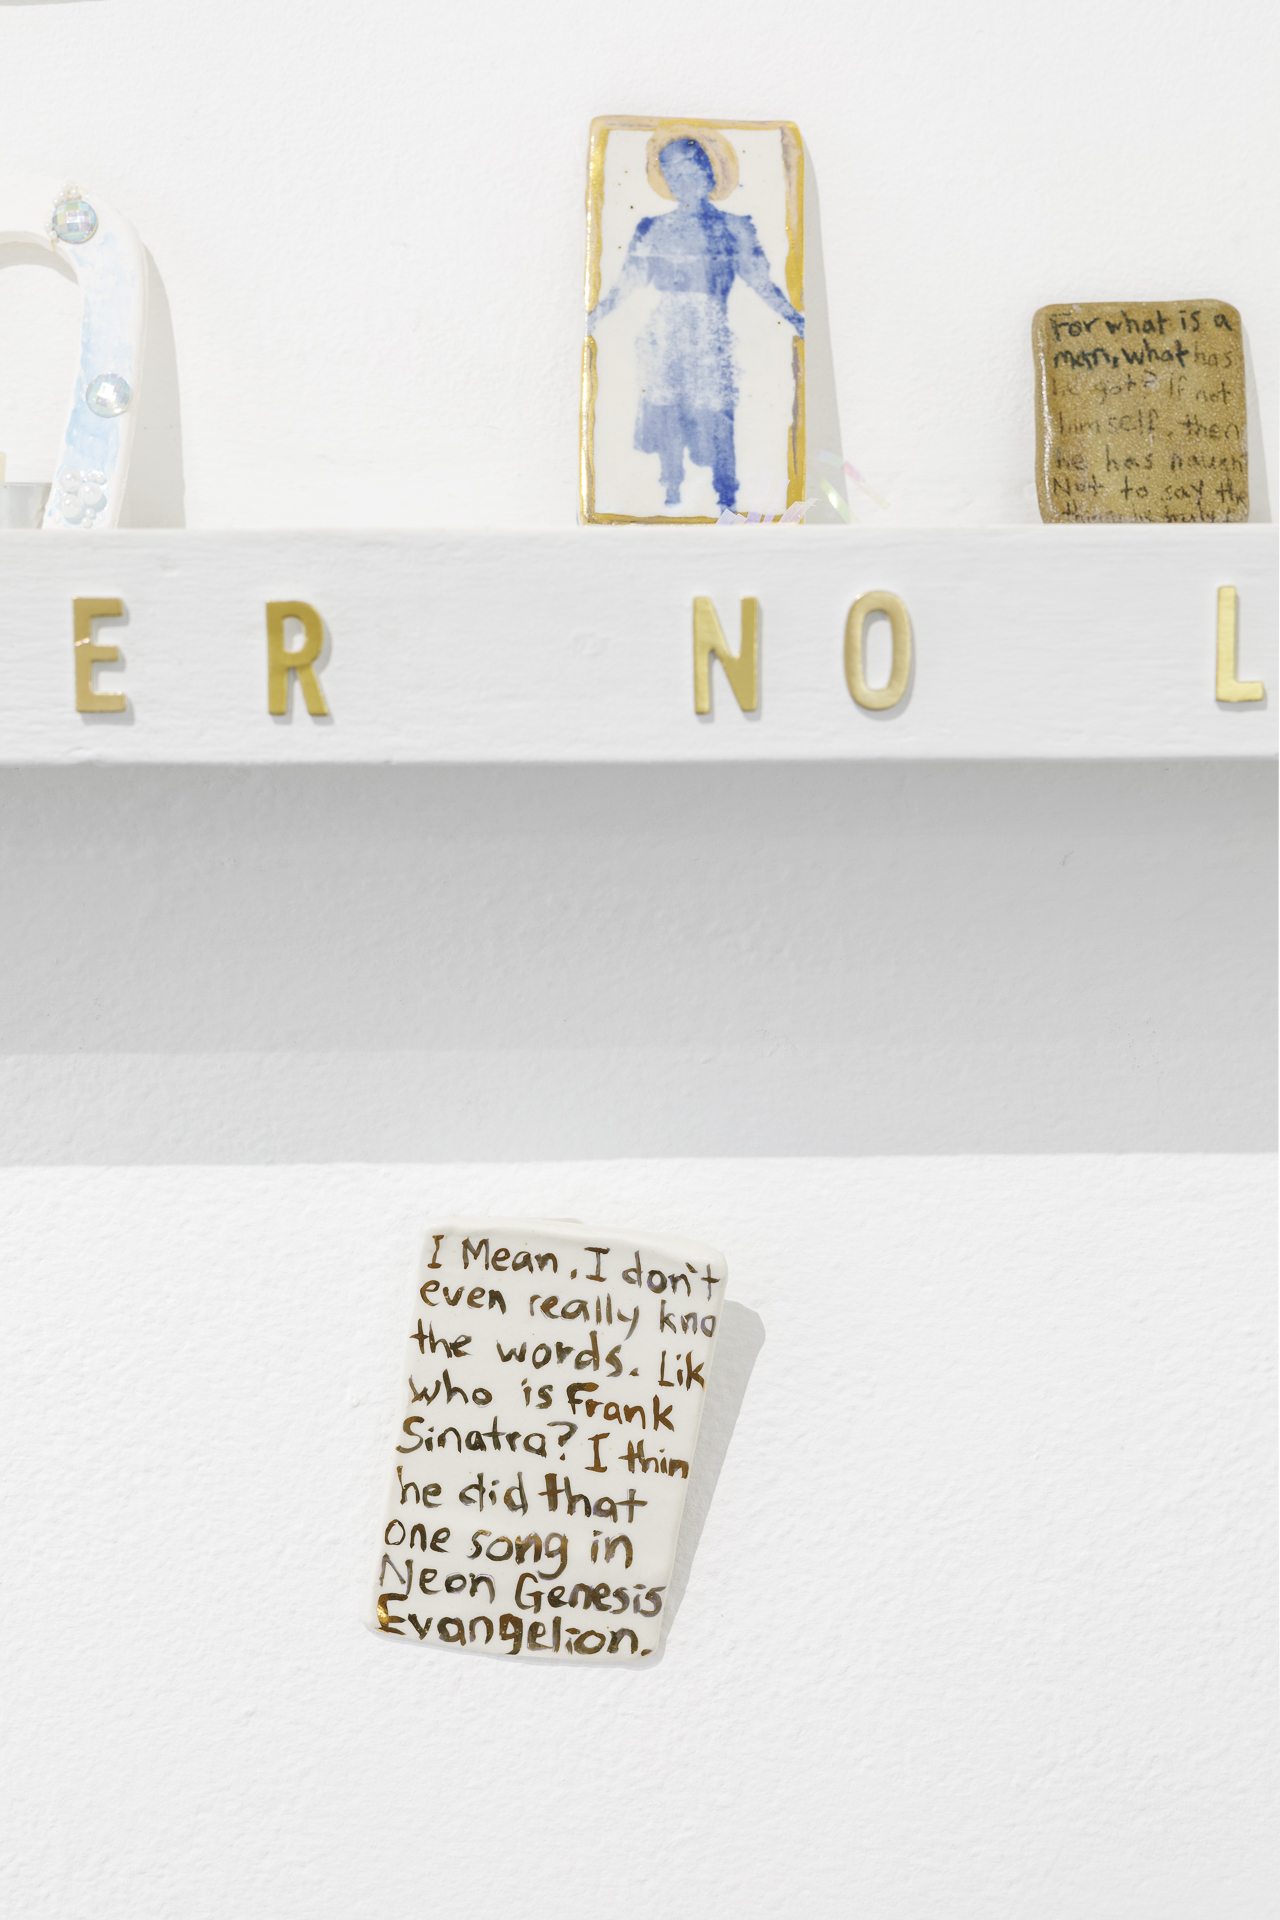 For what is a
man, what has
he got? If not
himself, then
he has naugh
Not to say the
E R N O L
I Mean, I don't
even really kno
the words. Lik
who is Frank
Sinatra? I thin
he did that
one song in
Neon Genesis
Evangelion.